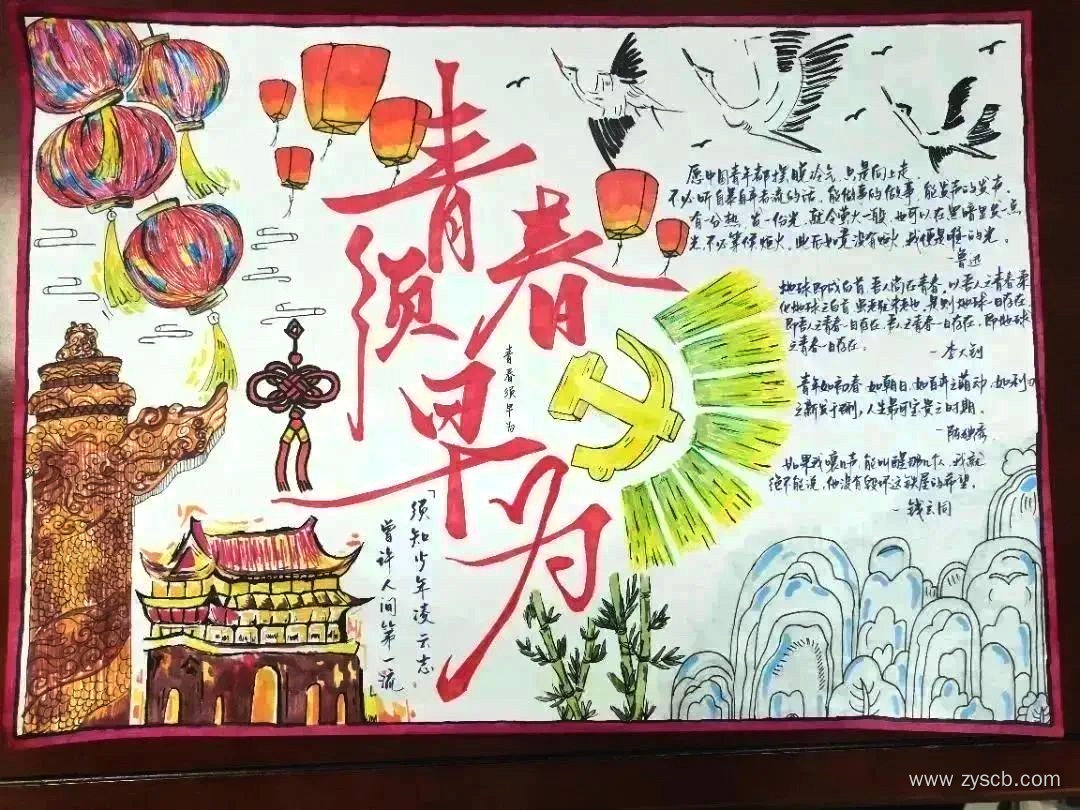 青春
须早为
青春须早为
「须知少年凌云志
曾许人间第一流」
愿中国青年都摆脱冷气,只是向上走,
不必听自暴自弃者流的话。能做事的做事,能发声的发声。
有一份热,发一份光,就令萤火一般,也可以在黑暗里发一点
光,不必等候炬火,此后如竟没有炬火,我便是唯一的光。
-鲁迅
地球即成白首,吾人尚在青春,以吾人之青春,柔
化地球之白首,虽老犹未老也。是则地球一日存在,
即吾人之青春一日存在。吾人之青春一日存在,即地球
之青春一日存在。
-李大钊
青年如初春,如朝日,如百卉之萌动,如利刃
之新发于硎,人生最可宝贵之时期。
-陈独秀
如果我嚎一声,能叫醒那几个人,我就
绝不能说,他没有毁坏这铁屋的希望。
-钱玄同
www.zyscb.com